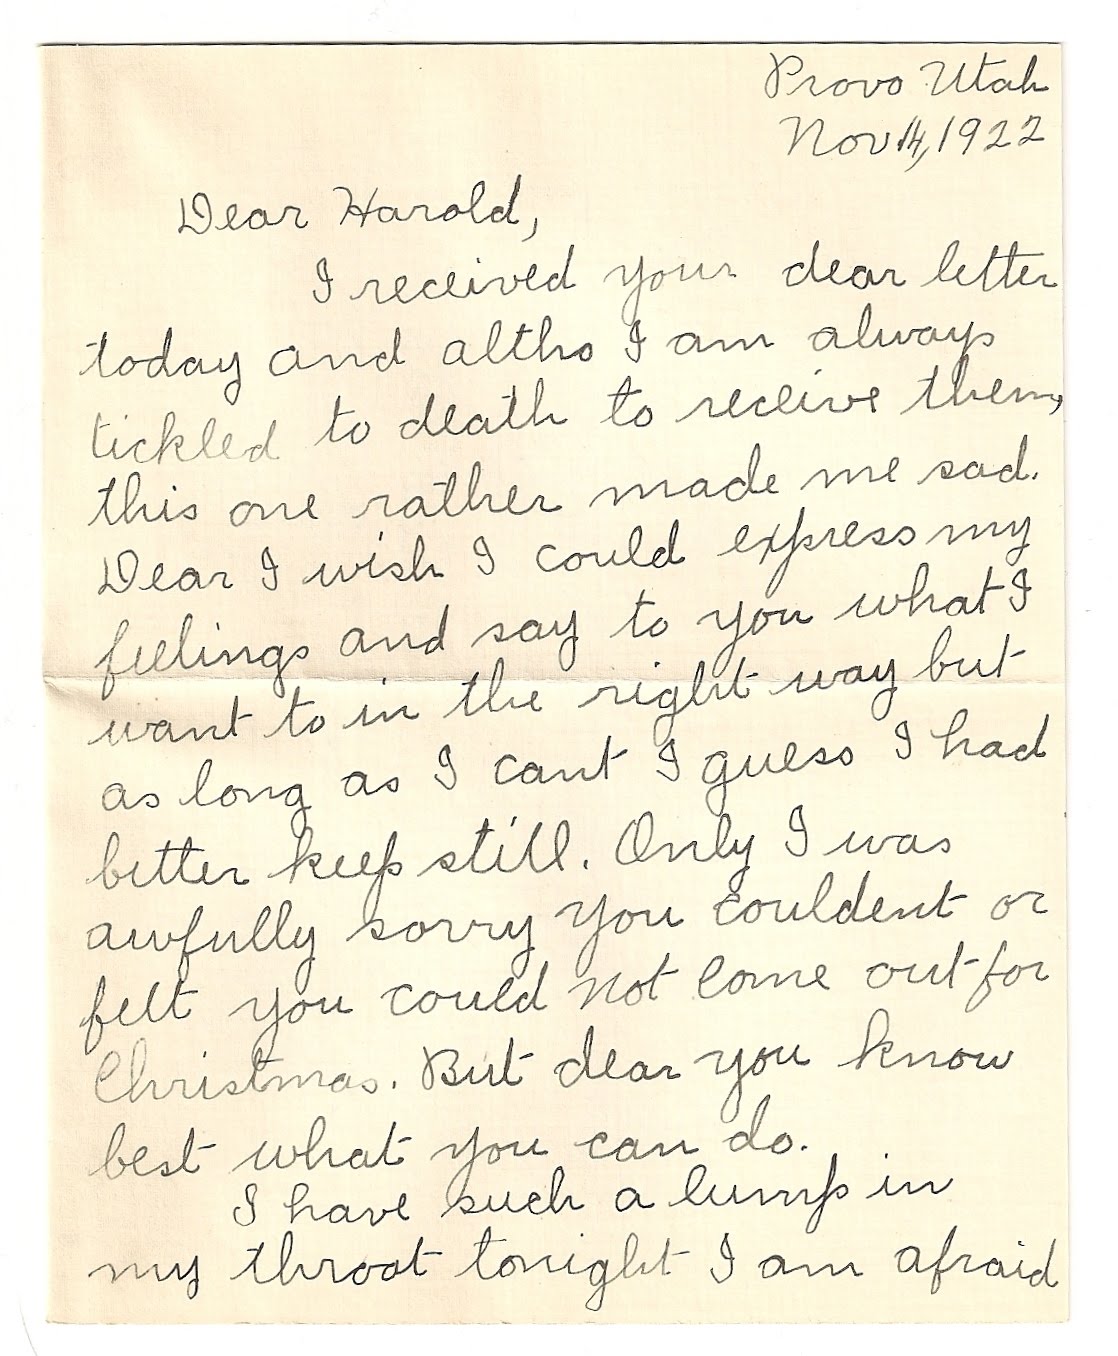 Provo Utah
Nov 14, 1922
Dear Harold,
I received your dear letter
today and altho I am always
tickled to death to receive them,
this one rather made me sad.
Dear I wish I could express my
feelings and say to you what I
want to in the right way but
as long as I cant I guess I had
better keep still. Only I was
awfully sorry you couldent or
felt you could not come out for
Christmas. But dear you know
best what you can do.
I have such a lump in
my throat tonight I am afraid